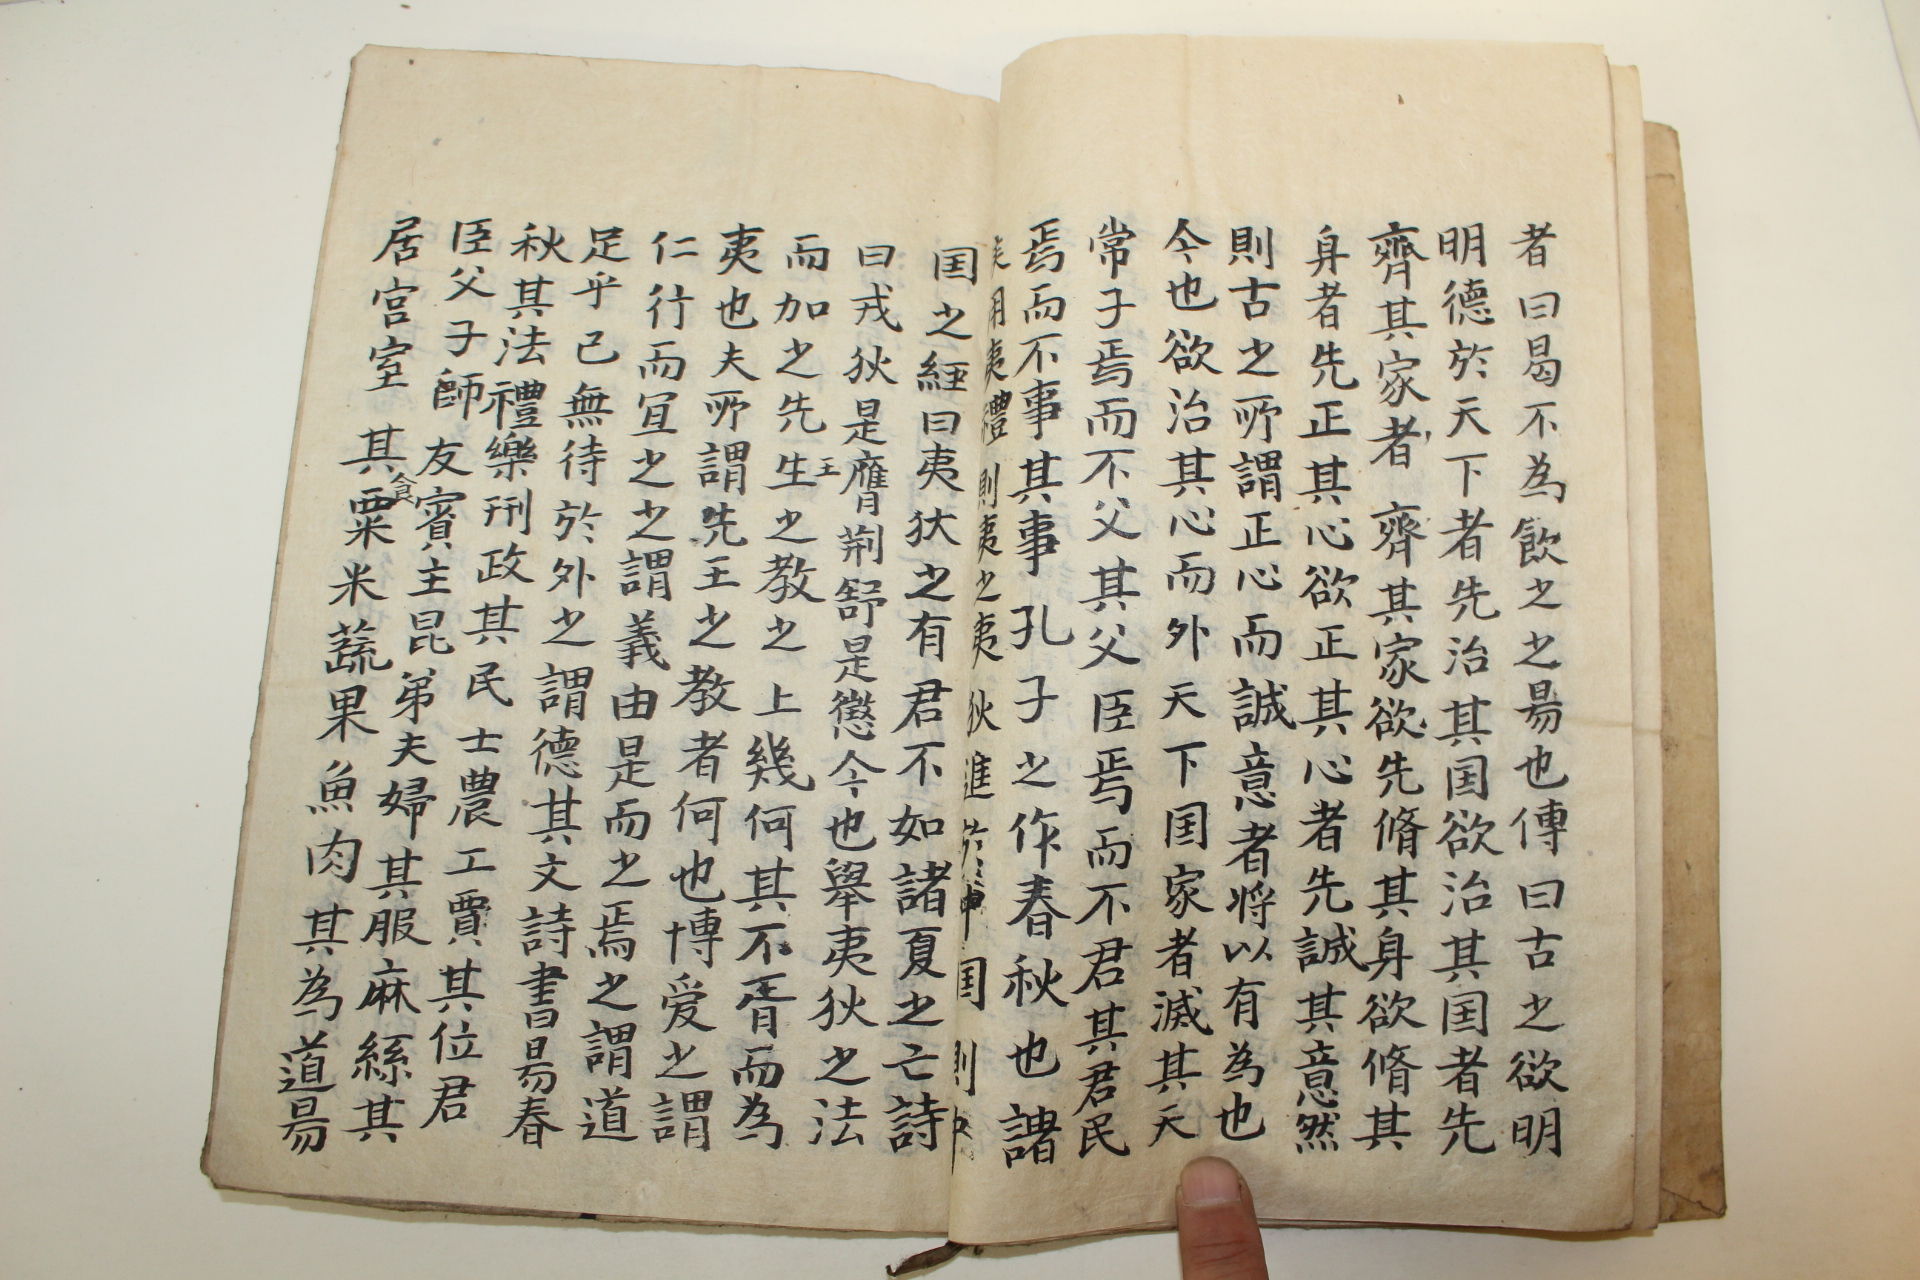 者曰曷不為飲之之易也傳曰古之欲明
明德於天下者先治其国欲治其国者先
齊其家者齊其家欲先脩其身欲脩其
身者先正其心欲正其心者先誠其意然
則古之所謂正心而誠意者將以有為也
今也欲治其心而外天下国家者滅其天
常子焉而不父其父臣焉而不君其君民
焉而不事其事孔子之作春秋也諸
矦用夷禮則夷之夷狄進於中国則
国之經曰夷狄之有君不如諸夏之亡詩
曰戎狄是膺荆舒是懲今也舉夷狄之法
而加之先生王之教之上幾何其不胥而為
夷也夫所謂先王之教者何也博爱之謂
仁行而宜之之謂義由是而之焉之謂道
足乎己無待於外之謂德其文詩書易春
秋其法禮樂刑政其民士農工賈其位君
臣父子師友賓主昆弟夫婦其服麻絲其
居宫室其食粟米蔬果魚肉其為道易